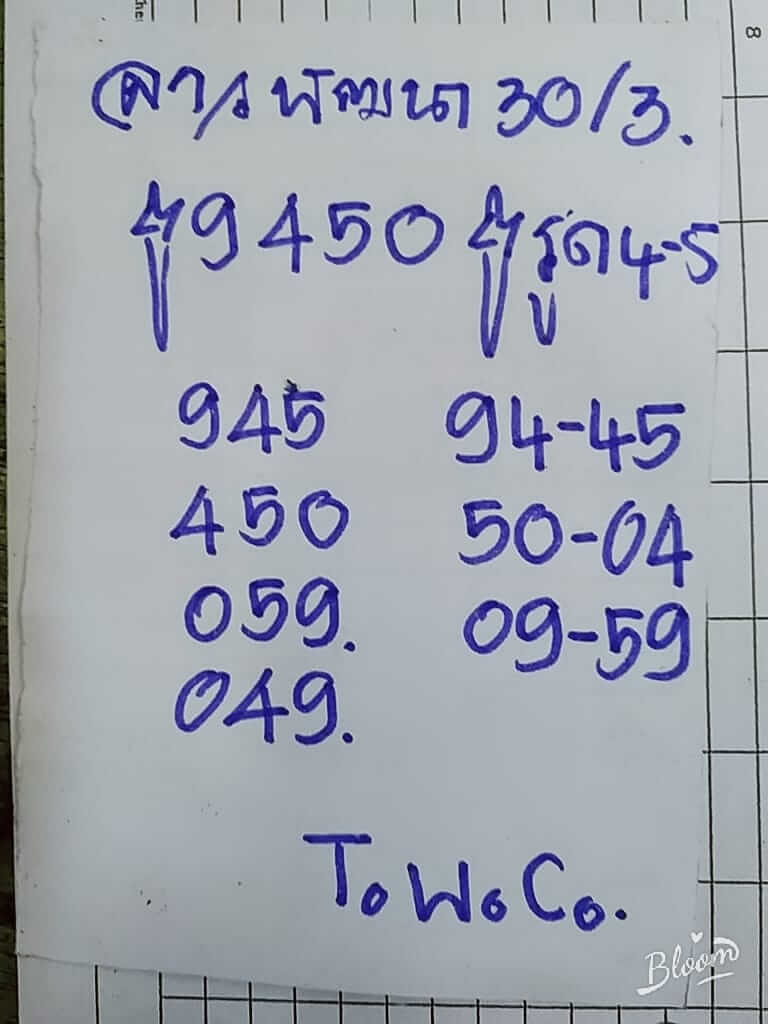 ลาวพัฒนา 30/3.
9450 รูด 4-5
945 94-45
450 50-04
059. 09-59
049.
ToWoCo.
Bloom
8